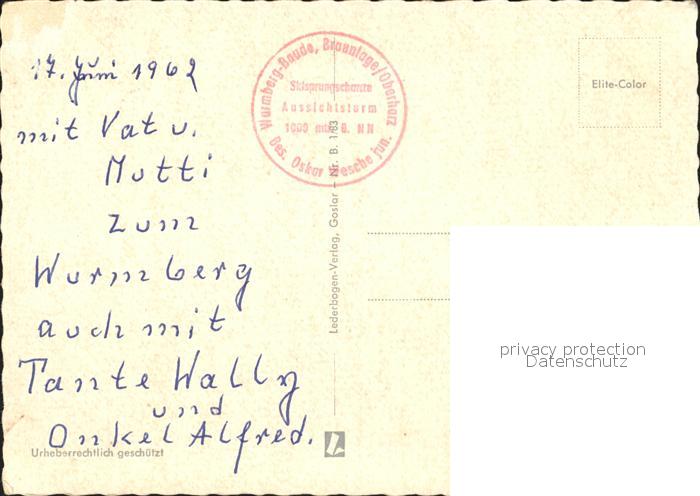 17. Juni 1962
mit Vat u.
Mutti
zum
Wurmberg
auch mit
Tante Wally
und
Onkel Alfred.
Urheberrechtlich geschützt
Wurmberg-Baude, Braunlage/Oberharz
Skisprungschanze
Aussichtsturm
1000 mtr. ü. NN
Bes. Oskar jun.
Lederbogen-Verlag, Goslar - Nr. B. 1/83
Elite-Color
privacy protection
Datenschutz